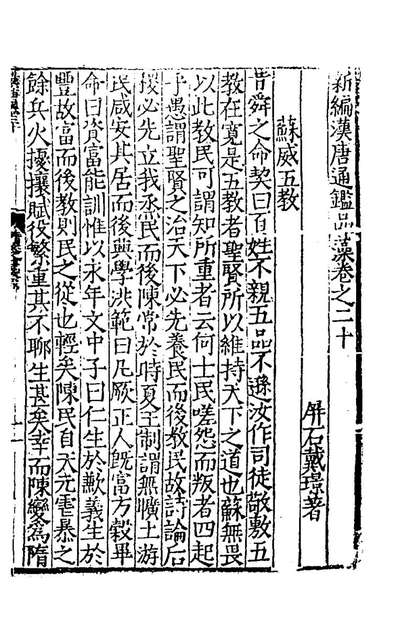 新編漢唐通鑑品藻卷之二十
屏石戴璟著
蘇威五教
昔舜之命契曰百姓不親五品不遜汝作司徒敬敷五
教在寬是五教者聖賢所以維持天下之道也蘇無畏
以此教民可謂知所重者云何士民嗟怨而叛者四起
乎愚謂聖賢之治天下必先養民而後教民故詩論后
稷必先立我烝民而後陳常於時夏王制謂無曠土游
民咸安其居而後興學洪範曰凡厥正人旣富方穀畢
命曰資富能訓惟以永年文中子曰仁生於歉義生於
豐故富而後教則民之從也輕矣陳民自天元虐暴之
餘兵火擾攘賦役繁重其不聊生甚矣幸而陳變爲隋